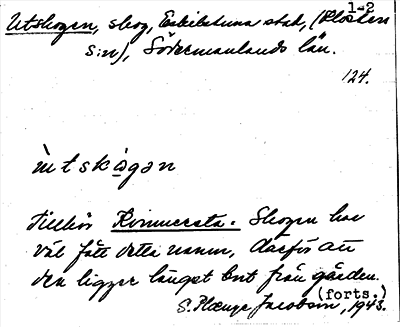 1-2
Utskogen, skog, Eskilstuna stad, (Klosters
s:n), Södermanlands län.
124.
ùtskògən
Tillhör Rinnersta. Skogen har
väl fått detta namn, därför att
den ligger längst bort från gården.
(forts.)
S. Hænze Jacobson, 1943.